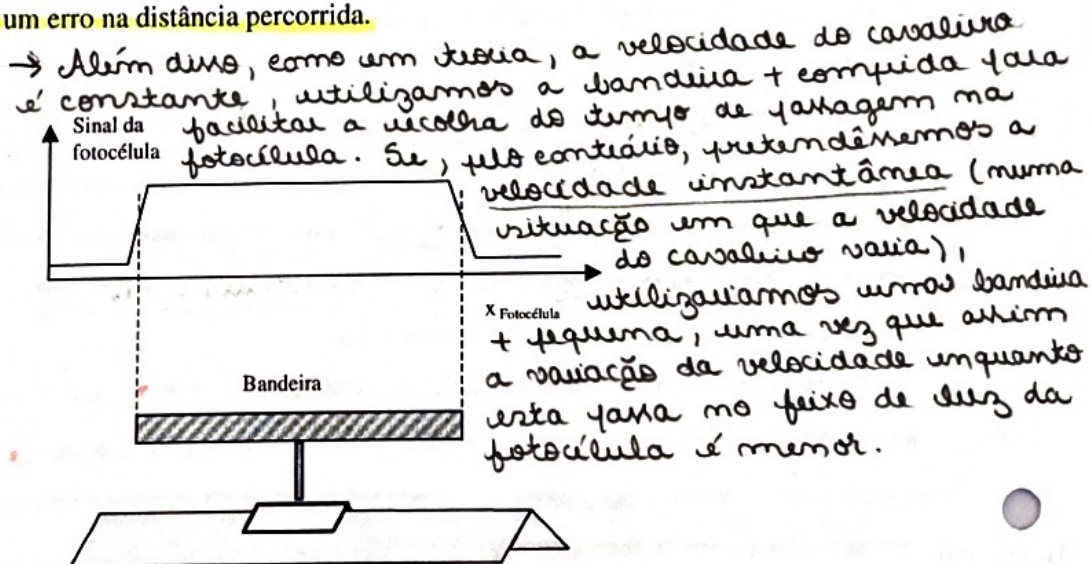 um erro na distância percorrida.
→ Além disso, como em teoria, a velocidade do cavaleiro
é constante, utilizamos a bandeira + comprida para
Sinal da fotocélula
facilitar a recolha do tempo de passagem na
fotocélula. Se, pelo contrário, pretendêssemos a
velocidade instantânea (numa
situação em que a velocidade
do cavaleiro varia),
x Fotocélula
utilizaríamos uma bandeira
+ pequena, uma vez que assim
a variação da velocidade enquanto
Bandeira
esta passa no feixo de luz da
fotocélula é menor.